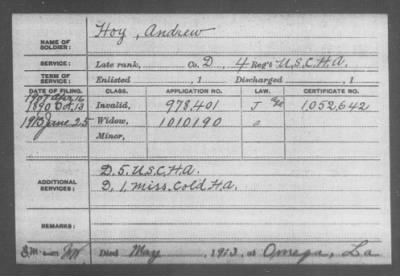 NAME OF SOLDIER: Hoy, Andrew
SERVICE: Late rank, Co. D, 4 Reg't U.S.C.H.A.
TERM OF SERVICE: Enlisted , 1 Discharged , 1
DATE OF FILING. CLASS. APPLICATION NO. LAW. CERTIFICATE NO.
1907 Apr 16
1890 Oct. 13 Invalid, 978,401 J 1,052,642
1913 June 25 Widow, 1010190
Minor,
ADDITIONAL SERVICES: D. 5. U.S.C.H.A.
D. 1. Miss. Cold H.A.
REMARKS:
Died May , 1913, at Omega, La